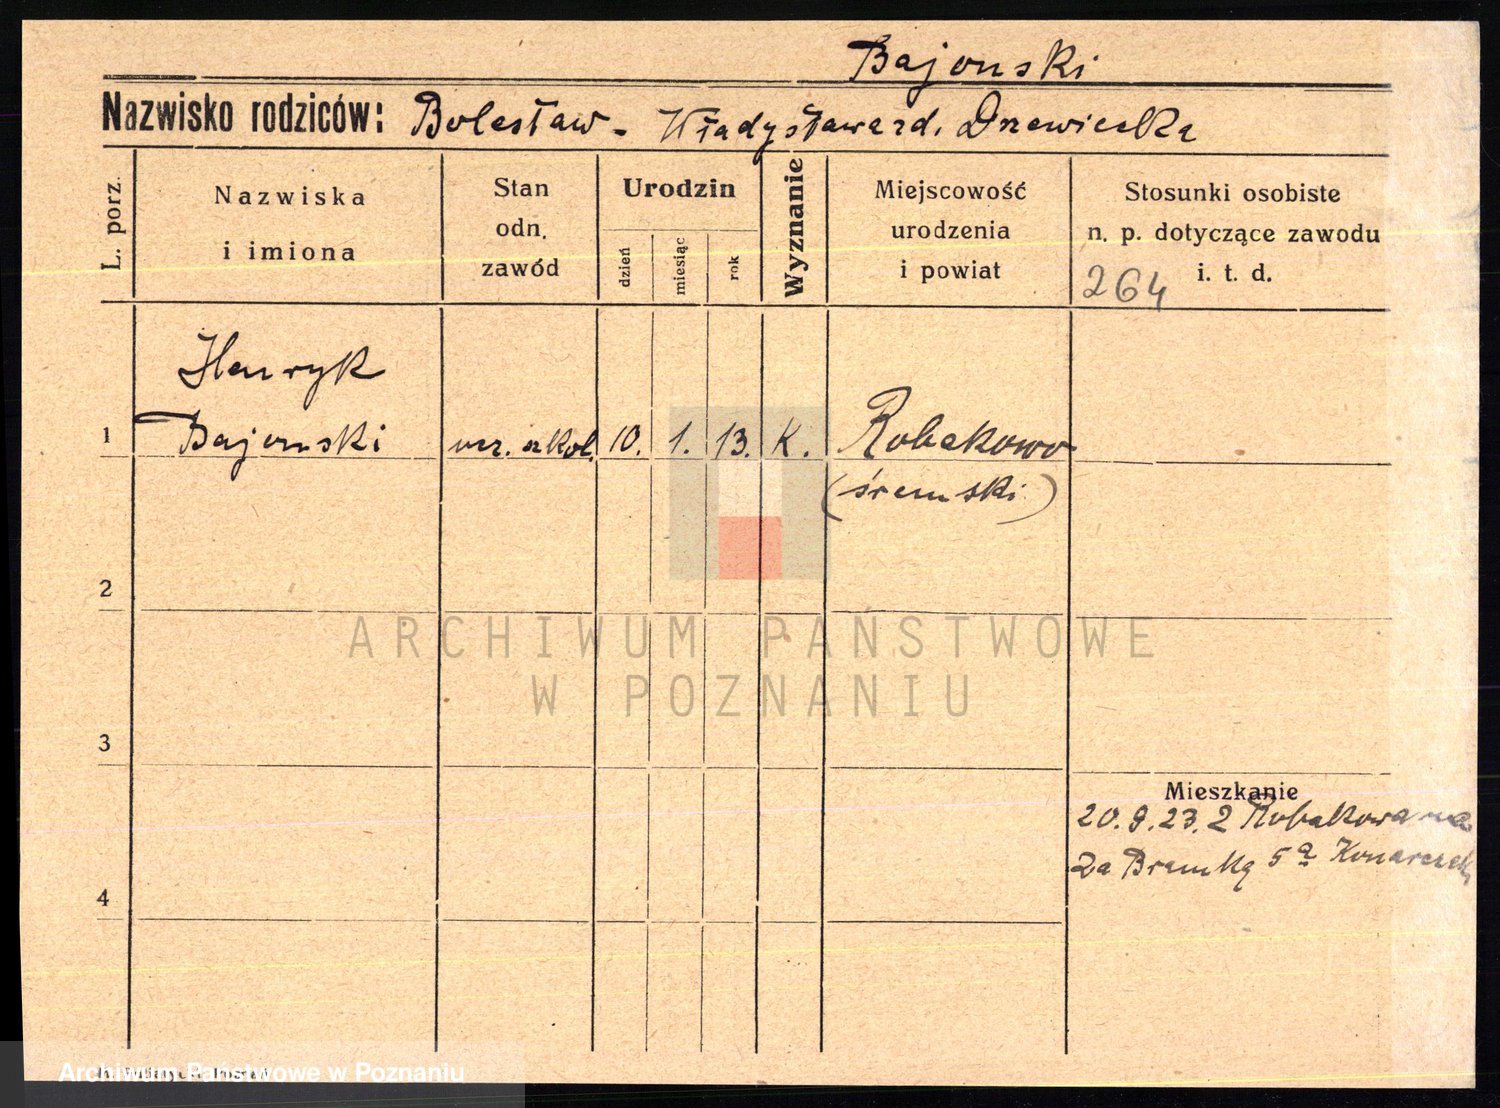 Bajonski
Nazwisko rodziców: Bolesław - Władysława zd. Drzewiecka
L. porz.
Nazwiska
i imiona
Stan
odn.
zawód
Urodzin
dzień
miesiąc
rok
Wyznanie
Miejscowość
urodzenia
i powiat
Stosunki osobiste
n. p. dotyczące zawodu
264 i. t. d.
Henryk
1 Bajonski ucz. szkol. 10. 1. 13. K. Robakowo
(śremski)
2
ARCHIWUM PAŃSTWOWE
W POZNANIU
3
Mieszkanie
20. 9. 23. 2 Robakowa
Za Bramką 5a
4
Archiwum Państwowe w Poznaniu